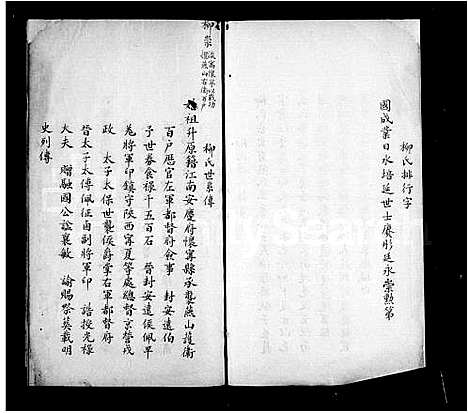 柳氏排行字
國成業日永培延世士慶彤廷永崇勲第
柳棠
柳氏世系傳
始祖升原籍江南安慶府懷寧縣承襲燕山護衛
百戶歷官左軍都督府僉事 封安遠伯
予世券食祿千五百石 晉封安遠侯佩平
羗將軍印鎮守陝西寧夏等處總督京營戎
政 太子太保世襲侯爵掌右軍都督府
晉太子太傅佩征鹵副將軍印 誥授光祿
大夫 贈融國公諡襄敏 諭賜祭葬載明
史列傳